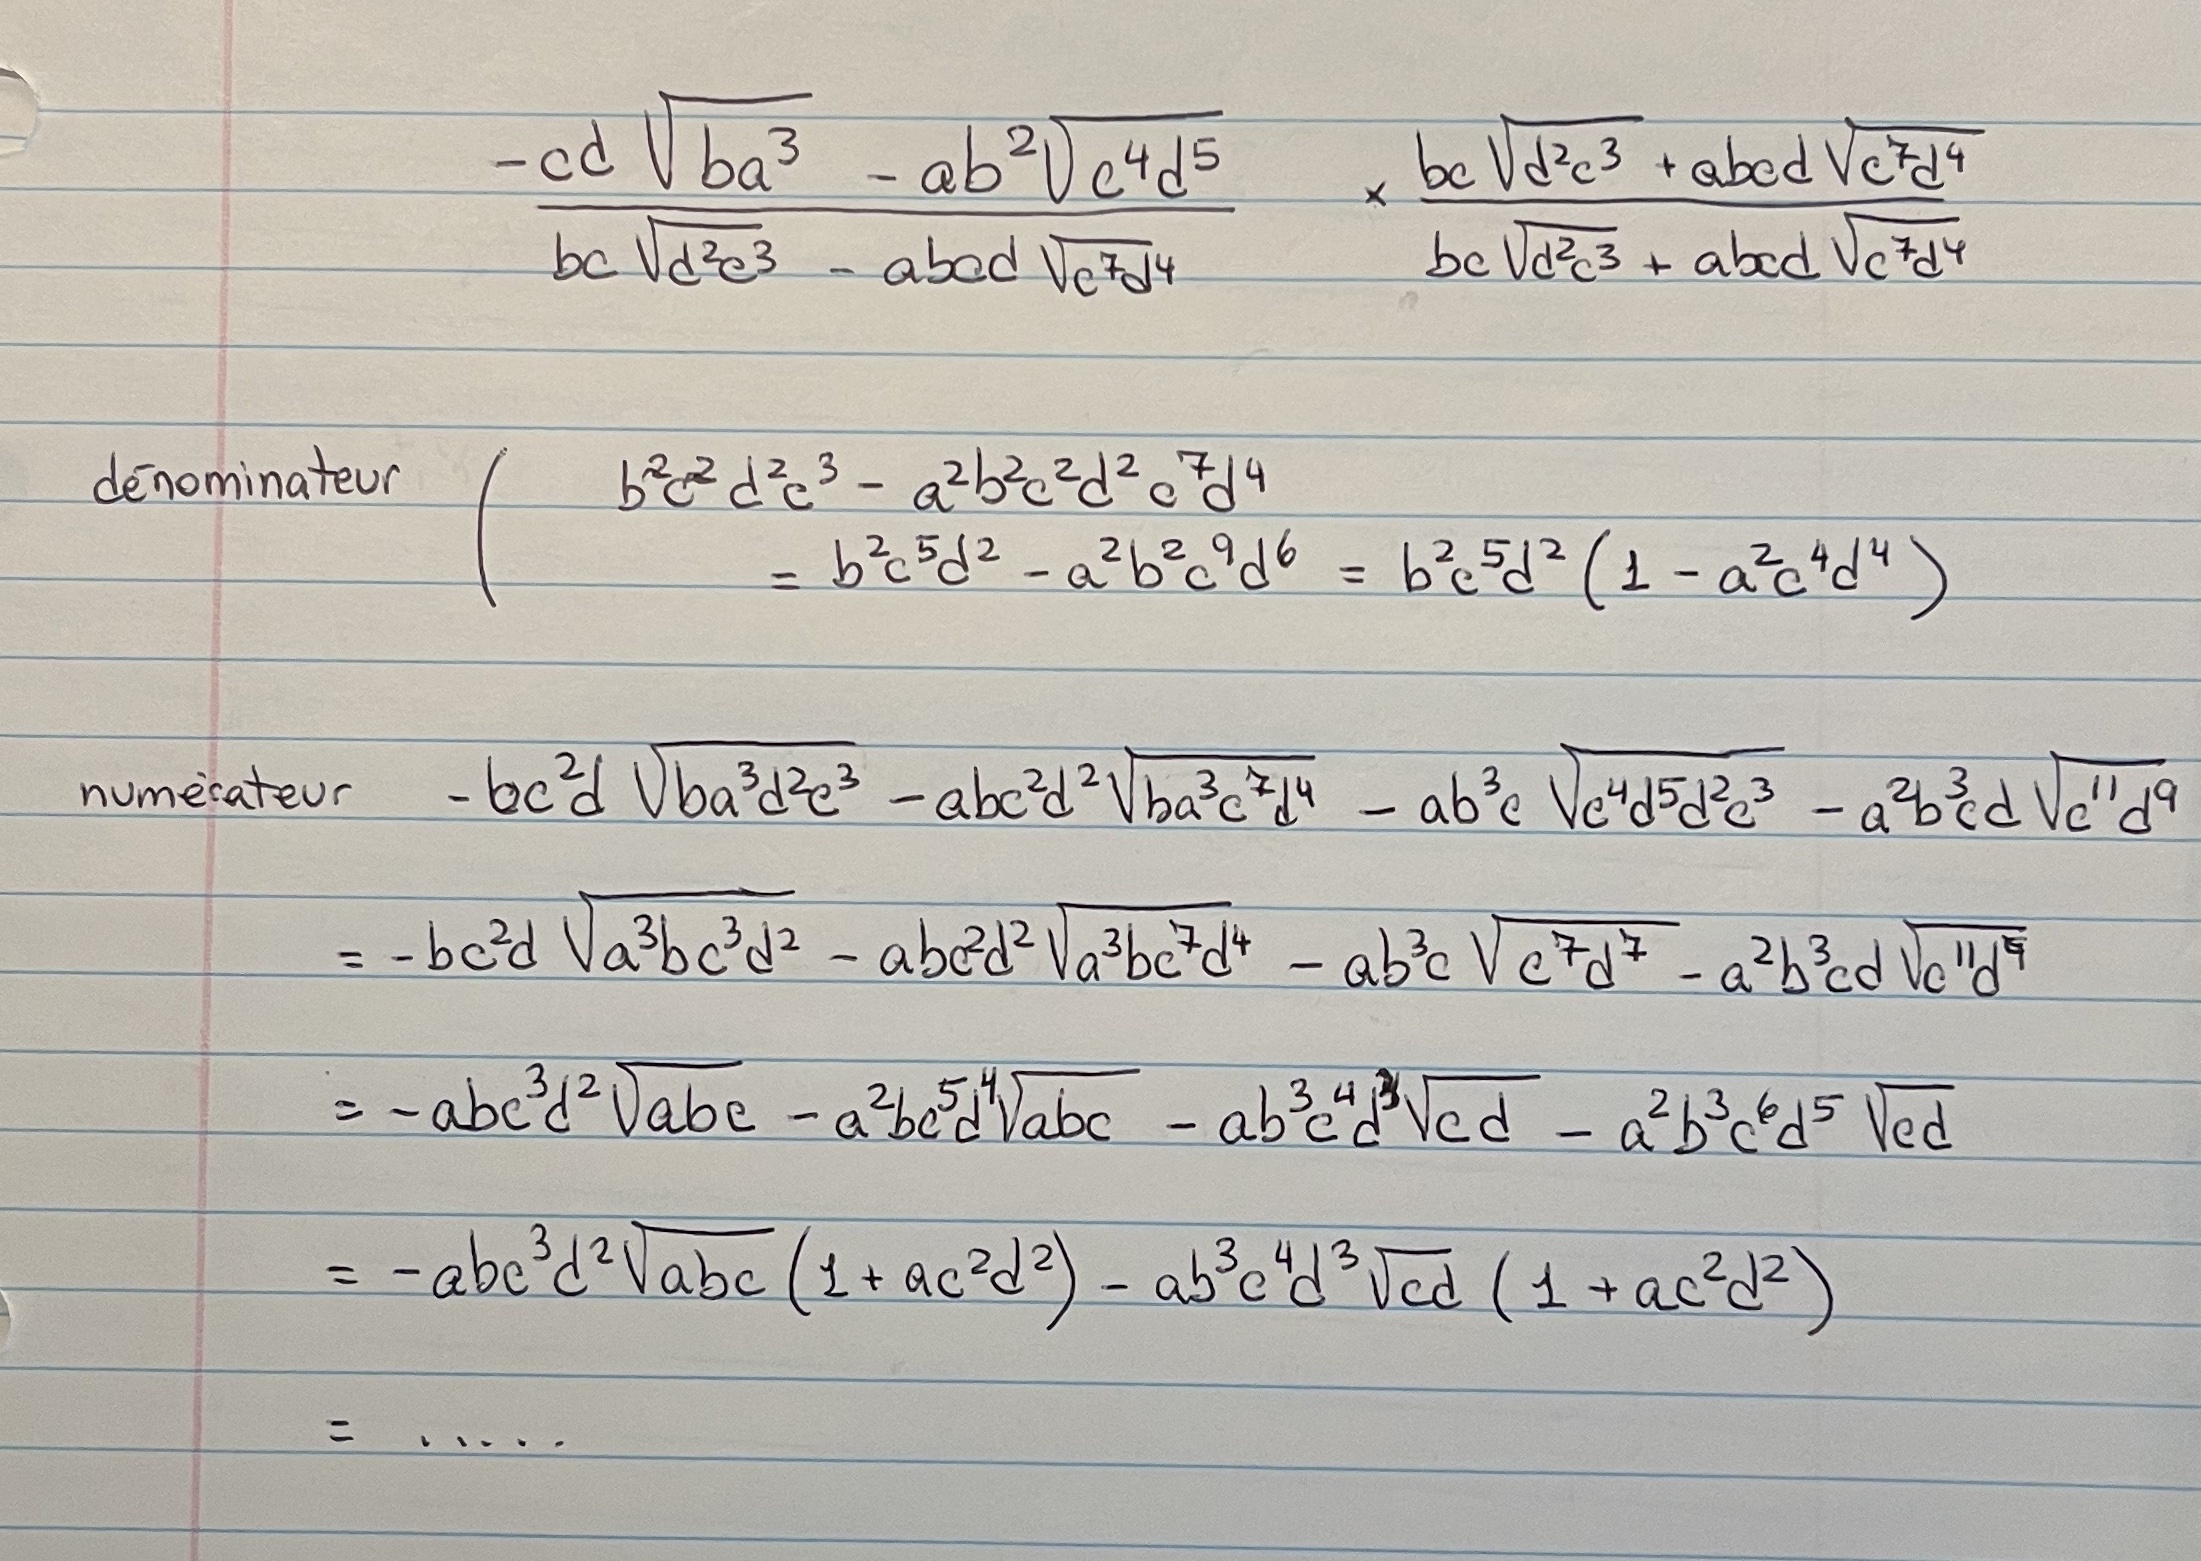 -cd √(ba³) - ab² √(c⁴d⁵) / bc √(d²c³) - abcd √(c⁷d⁴) × bc √(d²c³) + abcd √(c⁷d⁴) / bc √(d²c³) + abcd √(c⁷d⁴)
dénominateur ( b²c² d²c³ - a²b²c²d² c⁷d⁴
= b²c⁵d² - a²b²c⁹d⁶ = b²c⁵d² (1 - a²c⁴d⁴)
numérateur -bc²d √(ba³d²c³) - abc²d² √(ba³c⁷d⁴) - ab³c √(c⁴d⁵d²c³) - a²b³cd √(c¹¹d⁹)
= -bc²d √(a³bc³d²) - abc²d² √(a³bc⁷d⁴) - ab³c √(c⁷d⁷) - a²b³cd √(c¹¹d⁹)
= -abc³d² √(abc) - a²bc⁵d⁴ √(abc) - ab³c⁴d³ √(cd) - a²b³c⁶d⁵ √(cd)
= -abc³d² √(abc) (1 + ac²d²) - ab³c⁴d³ √(cd) (1 + ac²d²)
= .....